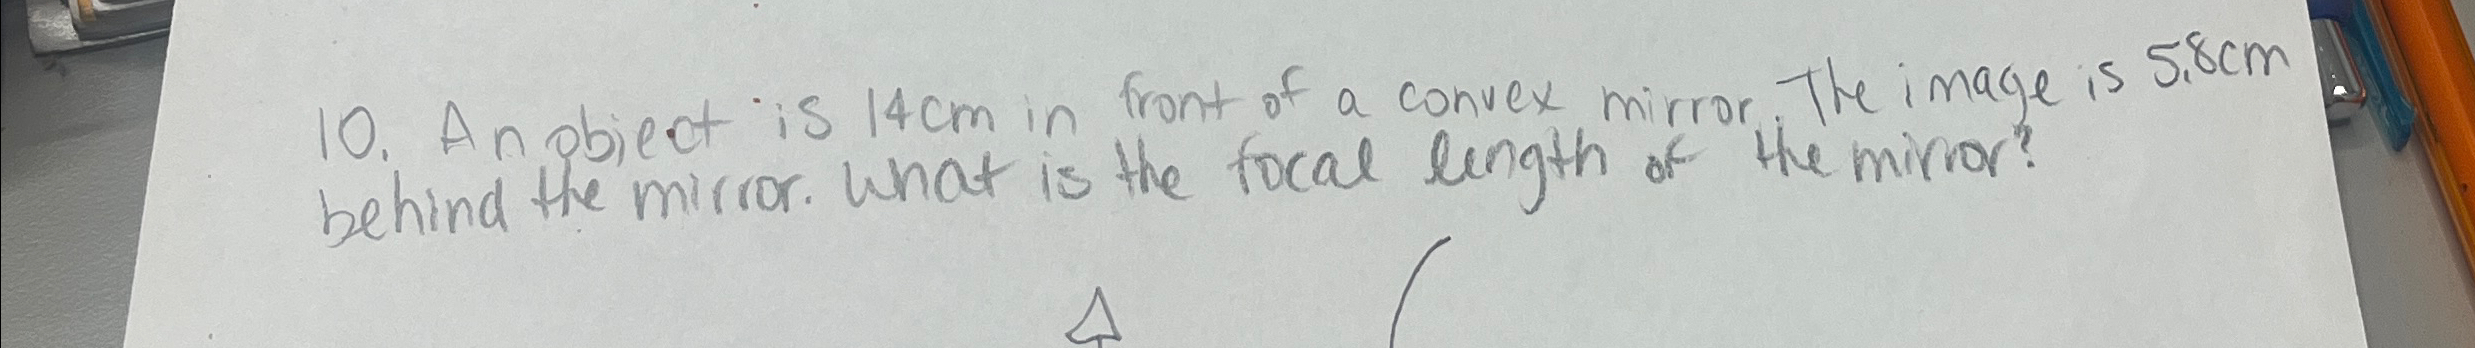 10. An object is 14cm in front of a convex mirror. The image is 5.8cm
behind the mirror. What is the focal length of the mirror?